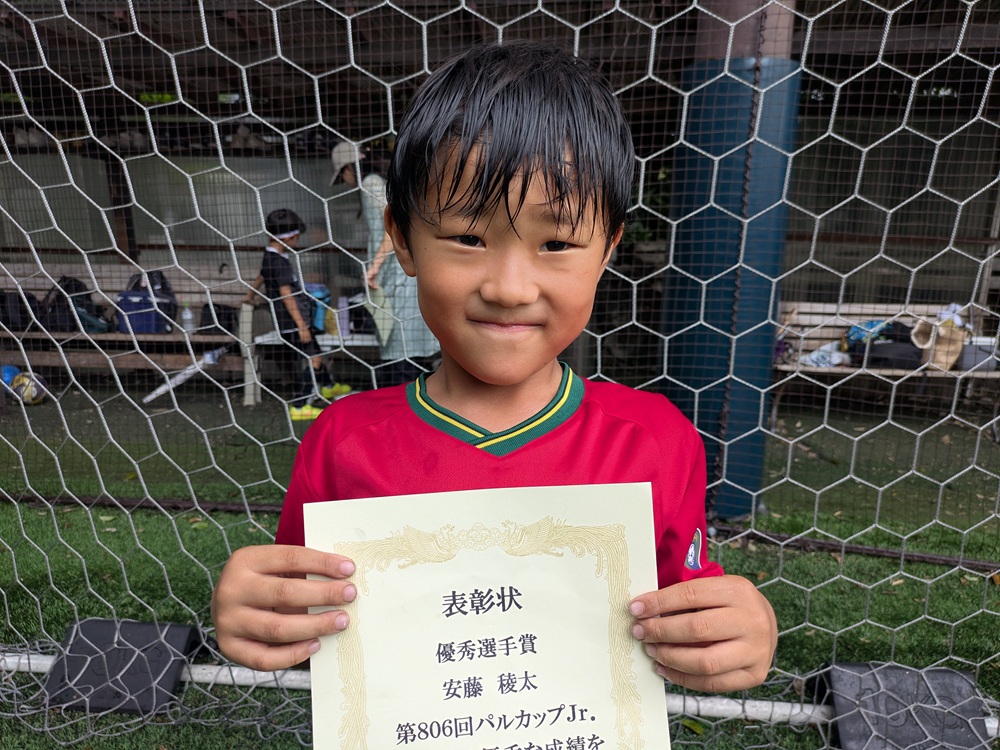 表彰状
優秀選手賞
安藤 稜太
第806回パルカップJr.
な成績を